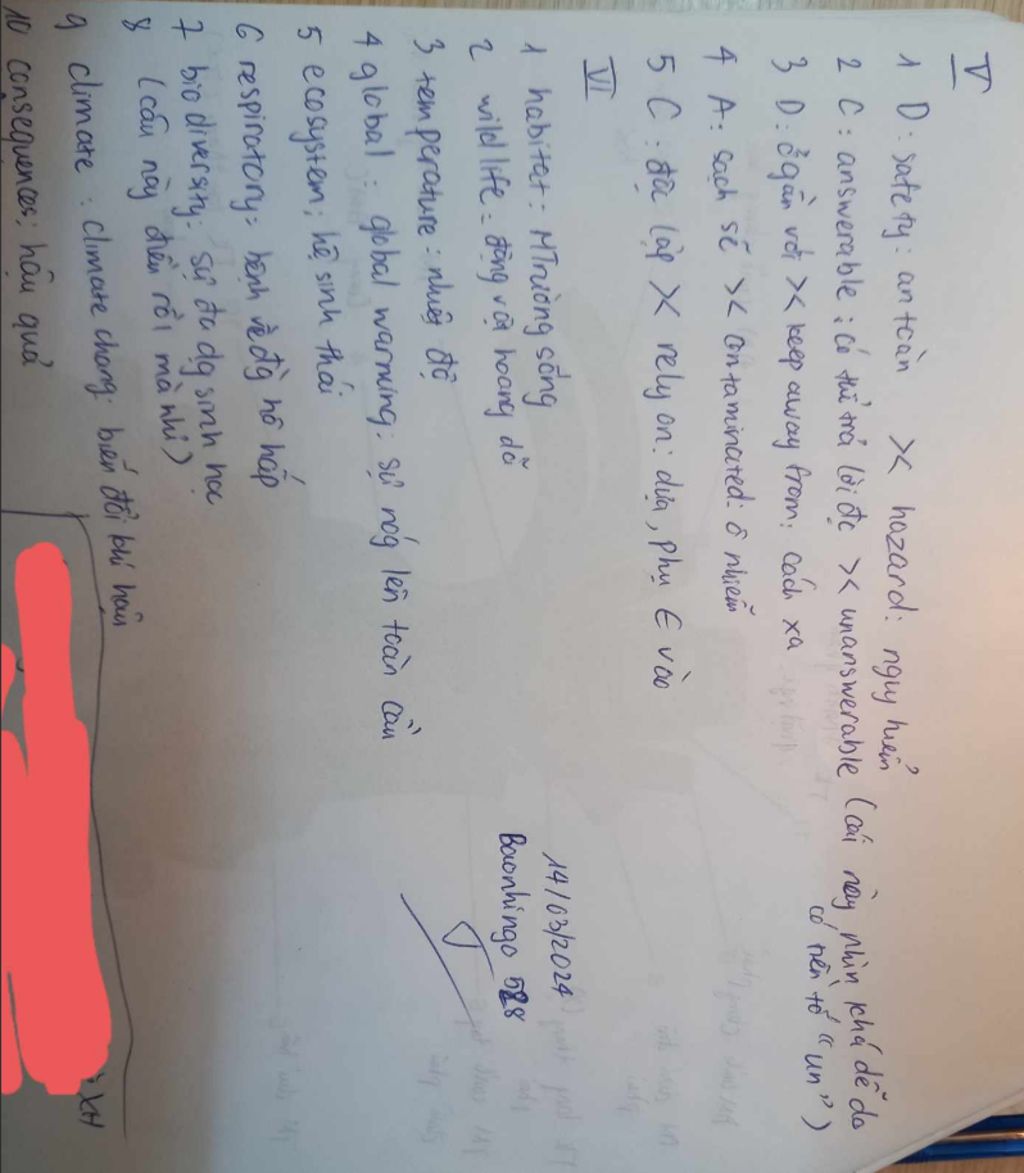 V
1 D: safety: an toàn >< hazard: nguy hiểm
2 C: answerable: có thể trả lời đc >< unanswerable (cái này nhìn khá dễ do
có tiền tố "un")
3 D: ở gần với >< keep away from: cách xa
4 A: sạch sẽ >< contaminated: ô nhiễm
5 C: độc lập >< rely on: dựa, phụ ∈ vào
VI
1 habitat: MTrường sống
2 wildlife: động vật hoang dã
3 temperature: nhiệt độ
4 global: global warming: sự nóg lên toàn cầu
5 ecosystem: hệ sinh thái
6 respiratory: bệnh về đg hô hấp
7 biodiversity: sự đa dg sinh học
8 (câu này điền rồi mà nhỉ)
9 climate: climate chang: biến đổi khí hậu
10 consequences: hậu quả
14/03/2024
Baonhingo 528
XH